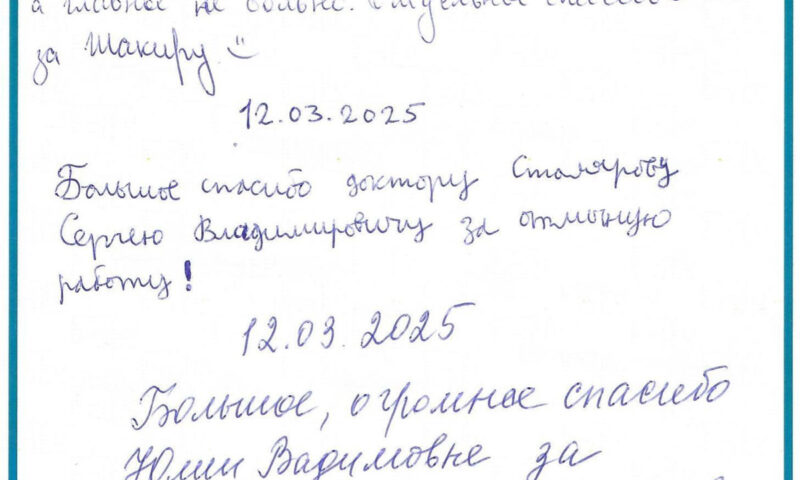 а главное не больно. Отдельное спасибо
за Шакиру
12.03.2025
Большое спасибо доктору Столярову
Сергею Владимировичу за отличную
работу!
12.03.2025
Большое, огромное спасибо
Юлии Вадимовне за